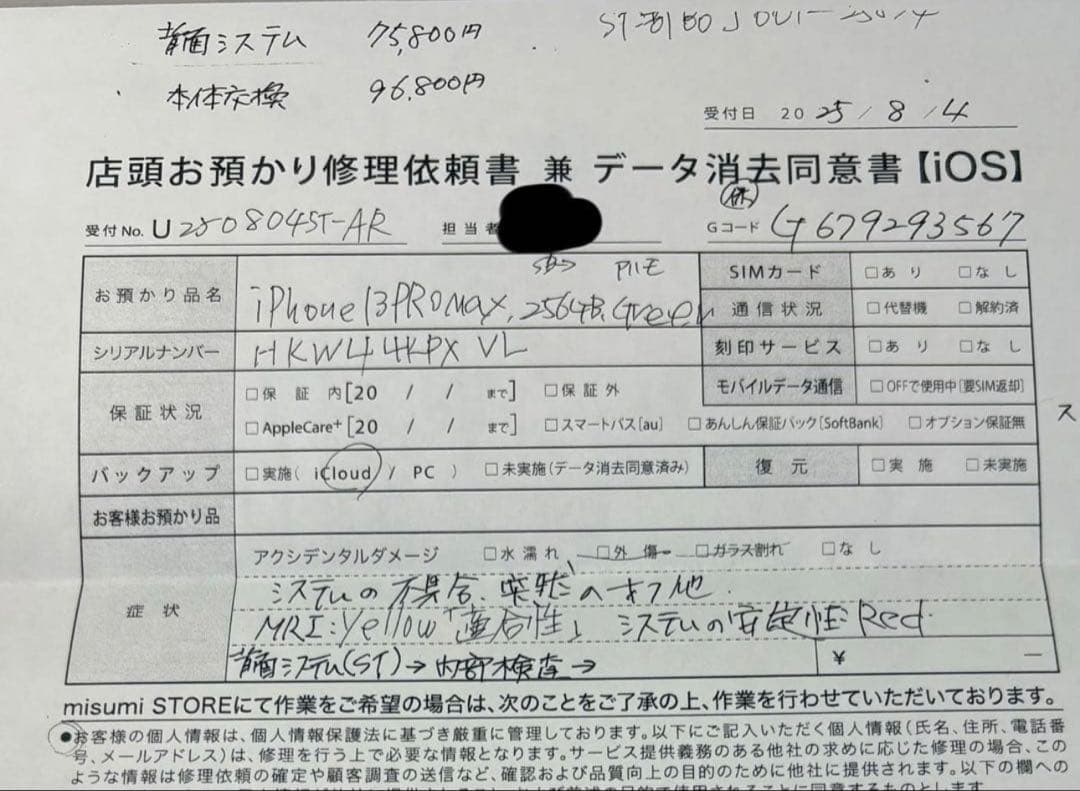 背面システム 75,800円
本体交換 96,800円
受付日 2025/8/4
店頭お預かり修理依頼書 兼 データ消去同意書【iOS】
受付No. U250804ST-AR 担当者 Gコード G679293567
お預かり品名 iPhone13PROMax, 256GB, Green
SIMカード □あり □なし
通信状況 □代替機 □解約済
シリアルナンバー HKW44KPXVL
刻印サービス □あり □なし
保証状況 □保証内[20 / / まで] □保証外
モバイルデータ通信 □OFFで使用中[要SIM返却]
□AppleCare+[20 / / まで] □スマートパス[au] □あんしん保証パック[SoftBank] □オプション保証無
ス
バックアップ □実施( iCloud / PC ) □未実施(データ消去同意済み) 復元 □実施 □未実施
お客様お預かり品
症状 アクシデンタルダメージ □水濡れ □外傷 □ガラス割れ □なし
システムの不具合、突然
MRI:Yellow「適合性」 システムの安定性:Red
背面システム(ST)→内部検査→ ¥ ー
misumi STOREにて作業をご希望の場合は、次のことをご了承の上、作業を行わせていただいております。
●お客様の個人情報は、個人情報保護法に基づき厳重に管理しております。以下にご記入いただく個人情報(氏名、住所、電話番
号、メールアドレス)は、修理を行う上で必要な情報となります。サービス提供義務のある他社の求めに応じた修理の場合、この
ような情報は修理依頼の確定や顧客調査の送信など、確認および品質向上の目的のために他社に提供されます。以下の欄への